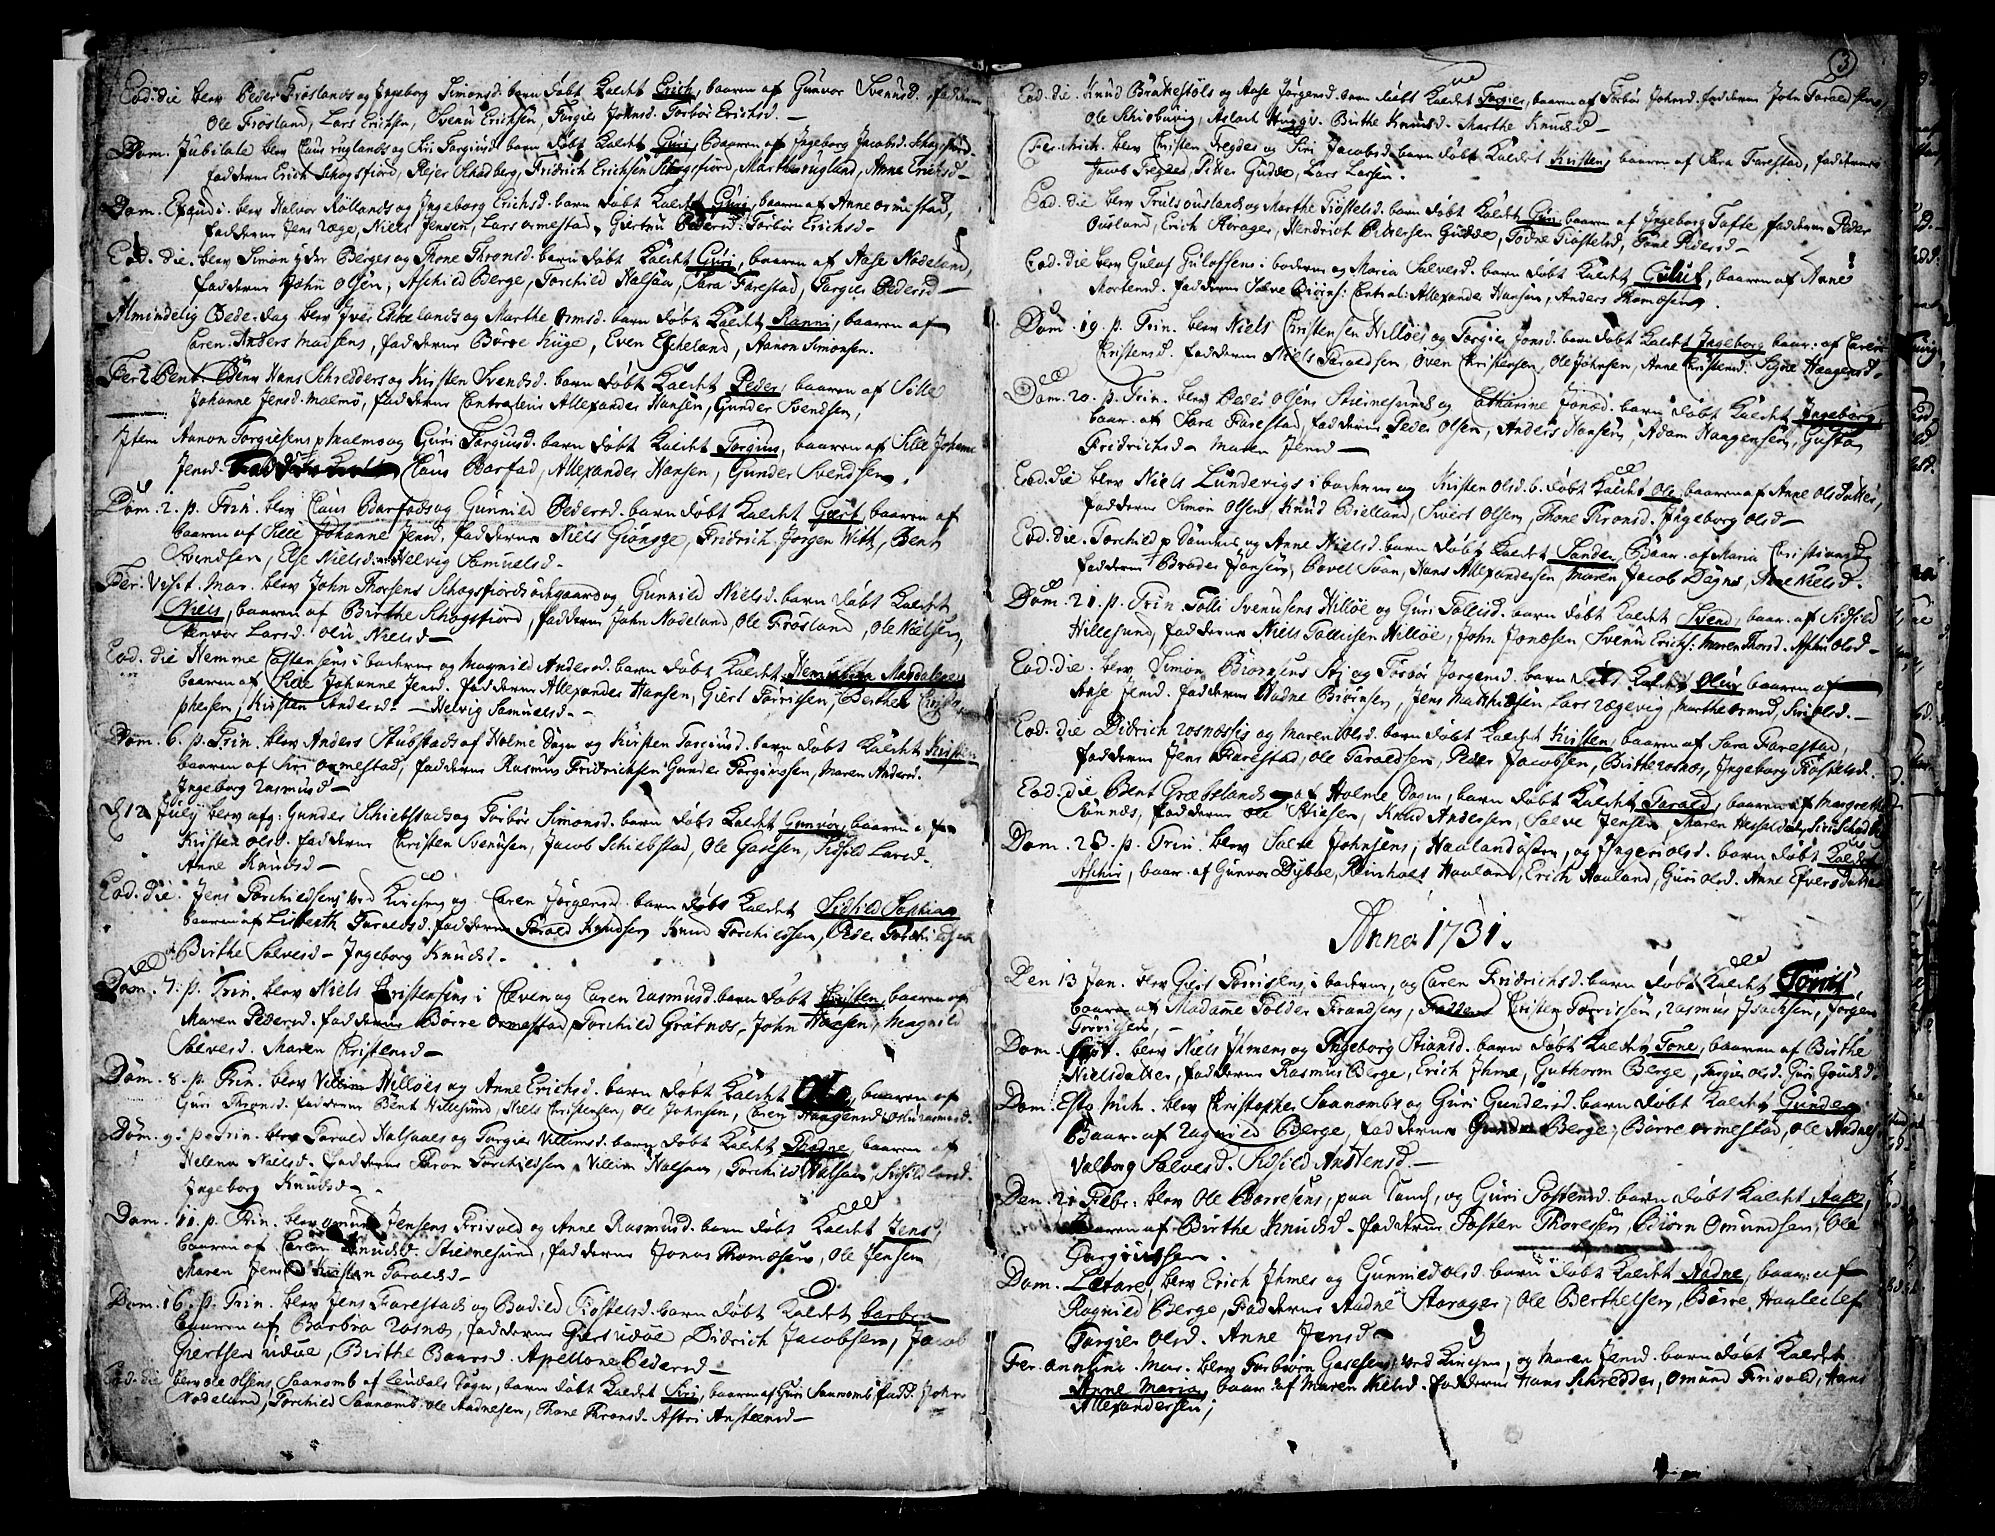 Eod. die blev Peder Frøslands og Ingeborg Simonsd. barn døbt Kaldet Erich, baaren af Gunvor Svenusd. fadderne
Ole Frøsland, Lars Erichsen, Svenu Erichsen, Torgier Johnsd. Torbør Erichsd.
Dom. Jubilate blev Claus ruglands og Siri Torgiusd. barn døbt Kaldet Guri, Baaren af Ingeborg Jacobsd. Schogsfiord.
fadderne Erich Schogsfiord, Rejer Schadberg, Fridrich Erichsen Schogsfiord, Marthe rugland, Anne Erichsd
Dom. Exaudi. blev Halvor Røllands og Ingeborg Erichsd. barn døbt Kaldet Guri, baaren af Anne ormestad,
fadderne Jens Wæge, Niels Jensen, Lars ormestad, Giertru Pedersd. Torbør Erichsd
Eod. die. blev Simon y der Berges og Thone Thronsd. barn døbt Kaldet Guri, baaren af Aase Nodeland,
fadderne John olsen, Aschild Berge, Torchild Halsaa, Sara Farestad, Torgier Pedersd
Almindelig Bede-dag blev Iver Eskelands og Marthe ormsd. barn døbt Kaldet Ranni, baaren af
Caren Anders Madsens, fadderne Børre Kuge, Even Eskeland, Aanon Simonsen.
Fer 2 Pent. blev Hans Schredders og Kirsten Svendsd. barn døbt Kaldet Peder, baaren af Sille
Johanne Jensd. Malmø, fadderne Centraleur Allexander Hansen, Gunder Svendsen,
Item Aanon Torgiussens p Malmø og Guri Torgiusd. barn døbt Kaldet Torgius, baaren af Sille Johanne
Jensd. Claus Barfod, Allexander Hansen, Gunder Svendsen.
Dom. 2. p. Trin. blev Claus Barfods og Gunnild Pedersd. barn døbt Kaldet Giert, baaren af
baaren af Sille Johanne Jensd. fadderne Niels Giønge, Fridrich Jørgen With, Bent
Svendsen, Else Nielsd. Helvig Samuelsd.
Fer. Visit. Mar. blev John Thorsens Schogsfiords ødegaard og Gunnild Nielsd. barn døbt Kaldet
Niels, baaren af Birthe Schogsfiord, fadderne John Nodeland, Ole Frøsland, Ole Nielsen,
Genvor Larsd. Oliv Nielsd
Eod. die Hemme Costensens i baderne og Magnild Andersd. barn døbt Kaldet Magdalene
baaren af Sille Johanne Jensd. fadderne Allexander Hansen, Giert Tørrissen, Berthel Christo,
phersen, Kirsten Andersd. Helvig Samuelsd.
Dom. 6. p. Trin. blev Anders Stubstads af Holme Sogn og Kirsten Torgiusd. barn døbt Kaldet Kirstin,
baaren af Siri ormestad, fadderne Rasmus Fridrichsen Gunder Torgiussen, Maren Andersd.
Ingeborg Rasmusd
d. 12 July blev afg. Gunder Schiebstads og Torbør Simonsd. barn døbt Kaldet Gunvor, baaren af
Kirsten olsd. fadderne Christen Svenusen, Jacob Schiebstad, Ole Gasesen, Sidsild Larsd.
Anne Knudsd
Eod. die. Jens Torchildsens ved Kirchen og Caren Jørgensd. barn døbt Kaldet Sidsild Sophia
baaren af Lisbeth Toraldsd. fadderne Torald Knudsen Knud Torchildsen, Peder Torchildsen
Birthe Salvesd. Ingeborg Knudsd.
Dom. 7. p. Trin. blev Niels Christensens i Cleven og Caren Rasmusd. barn døbt Christen, baaren af
Maren Pedersd. fadderne Børre Ormestad, Torchild Grøtnæs, John Hansen, Magnild
Salvesd. Maren Christensd
Dom. 8. p. Trin. blev Villum Hilløes og Anne Erichsd. barn døbt Kaldet Ole, baaren af
Guri Thronsd. fadderne Bent Hillesund, Niels Christensen, Ole Johnsen, Caren Haagensd.
Dom. 9. p. Trin. blev Torald Halsaaes og Torgier Villumsd. barn døbt Kaldet Aadne, baaren af
Helene Nielsd. fadderne Taron Torchildsen, Villum Halsaa, Torchild Halsaa, Sidsild Larsd.
Ingeborg Knudsd
Dom. 11. p. Trin. blev Omund Jensens Trisvold og Anne Rasmusd. barn døbt Kaldet Jens,
baaren af Caren Knudsd. Stiernesund, fadderne Jonas Thomæsen, Ole Jensen
Maren Jensd. Kirsten Toraldsd
Dom. 16. p. Trin. blev Jens Farestads og Bodild Tiøstelsd. barn døbt Kaldet Barbra
baaren af Barbra Rosnæs, fadderne Giert udøe Didrich Jacobsen, Jacob
Giertsen udøe, Birthe Baarsd. Apellone Pedersd
Eod. die blev ole olsens Saanomb af Leudals Sogn, barn døbt Kaldet Siri, baaren af Guri Saanomb, fadd. John
Nodeland, Torchild Saanomb, ole Aadnesen, Thone Thronsd. Astri Anstensd

3
Eod. die. Knud Brækestøls og Aase Jørgensd. barn døbt Kaldet Torgier, baaren af Torbør Johnsd. fadderne John Toraldsen,
Ole Schiøbuvig, Aslach Huggi. Birthe Knudsd. Marthe Knudsd
Fer. Mich. blev Christen Tregdes og Siri Jacobsd. barn døbt Kaldet Kirsten, baaren af Sara Farestad, fadderne
Jacob Tregde, Pitter Gudde, Lars Larsen.
Eod. die blev Truls ouslands og Marthe Tiøstelsd. barn døbt Kaldet Guri, baaren af Ingeborg Tofte fadderne Peder
Ousland, Erich Storager, Hendrich Pittersen Gudde, Todne Tiøstelsd, Tone Pedersd
Eod. die blev Guluf Gulofsens i baderne og Maria Salvesd. barn døbt Kaldet Guluf, baaren af Anne
Mortensd. fadderne Salve Biørns: Central: Allexander Hansen, Anders Thomæsen.
Dom. 19. p. Trin. blev Niels Christensen Hilløes og Torgier Jonsd. barn døbt Kaldet Ingeborg baar. af Caren
Christensd. fadderne Niels Toraldsen, Oven Christensen, Ole Johnsen, Anne Christensd. Signe Haagensd.
Dom. 20. p. Trin. blev Peder olsens Stiernesund og Catharine Jonæd. barn døbt Kaldet Ingeborg
baar. af Sara Farestad, fadderne Peder Olsen, Anders Hansen, Adam Haagensen, Gusta
Fridrichsd. Maren Jensd
Eod. die blev Niels Lundevigs i baderne og Kirsten Olsd. b. døbt Kaldet Ole, baaren af Anne Olsdatter,
fadderne Simon Olsen, Knud Bielland, Sivert Olsen, Thone Thronsd. Ingeborg Olsd
Eod. die. Torchild p Sandens og Anne Nielsd. barn døbt Kaldet Sander, Baar. af Maria Christiansd
fadderne Broder Jansen, Povel Svan, Hans Allexandersen, Maren Jacob Dagnes, Tone Nielsd.
Dom. 21. p. Trin. Tolli Svenusens Hilløe og Guri Tollisd. barn døbt Kaldet Svend, baar. af Sidsild
Hillesund, fadderne Niels Tollissen Hilløe, John Jonæsen, Svenu Erichs: Maren Thorsd. Astri Olsd
Eod. die. blev Simon Biørnsens og Torbør Jørgensd. barn døbt Kaldet Oliv baaren af
Aase Jensd. fadderne Aadne Biørnsen, Jens Matthisen Lars Wægevig, Marthe ormsd, Siri Olsd.
Eod. die Didrich Rosnæsis og Maren Olsd. barn døbt Kaldet Kirsten, baaren af Sara Farestad,
fadderne Jens Farestad, ole Toraldsen, Peder Jacobsen, Birthe Rosnæs, Ingeborg Tiøstelsd.
Eod. die Bent Græbslands af Holme Sogn, barn døbt Kaldet Torald, baaren af Margrethe
Sannæs, fadderne ole Stiesen, Knud Andersen, Salve Jensen, Maren Hesseldal, Siri Schadberg
Dom. 23. p. Trin. blev Salve Johnsens, Haalandøsen, og Ingeri olsd. barn døbt Kaldet
Aschier, baar. af Gunvor Dybbe, Reinholt Haaland, Erich Haaland, Guri olsd. Anne Efversdatter
Anno 1731.
Den 13 Jan. blev Giert Tørrisens i baderne, og Caren Fridrichsd. barn døbt Kaldet Tørris,
baaren af Madame Tolder Frandsens, Fadderne Christen Tørrissen, Rasmus Isachsen, Jørgen
Tørrissen,
Dom. Sept. blev Niels Ihmens og Ingeborg Stiansd. barn døbt Kaldet Tone, baaren af Birthe
Nielsdatter, fadderne Rasmus Berge, Erich Ihme, Guthorm Berge, Torgier olsd. Guri Goudsd.
Dom. Esto Mih. blev Christopher Saanombs og Guri Gundersd. barn døbt Kaldet Gunder,
Baar. af Ragnild Berge, fadderne Gunder Berge, Børre ormestad, Ole Aadnes
Valborg Salvesd. Sidsild Anstensd.
Den. 21 Febr: blev Ole Børresens, paa Sand, og Guri Tostensd. barn døbt Kaldet Aase,
baaren af Birthe Knudsd. fadderne Tosten Thoresen, Biørn Omundsen, Ole
Torgiussen.
Dom. Letare, blev Erich Ihmes og Gunnild Olsd. barn døbt Kaldet Aadne, baar. af
Ragnild Berge, Fadderne Aadne Storager, Ole Berthelsen, Børre, Haaleilef
Torgier Olsd. Anne Jensd
Fer. Annunc. Mar. blev Torbiørn Gasesens ved Kirchen, og Maren Jensd. barn døbt Kaldet
Anne Maria, baar. af Maren Nielsd. fadderne Hans Schredder, Omund Trisvold, Hans
Allexandersen,